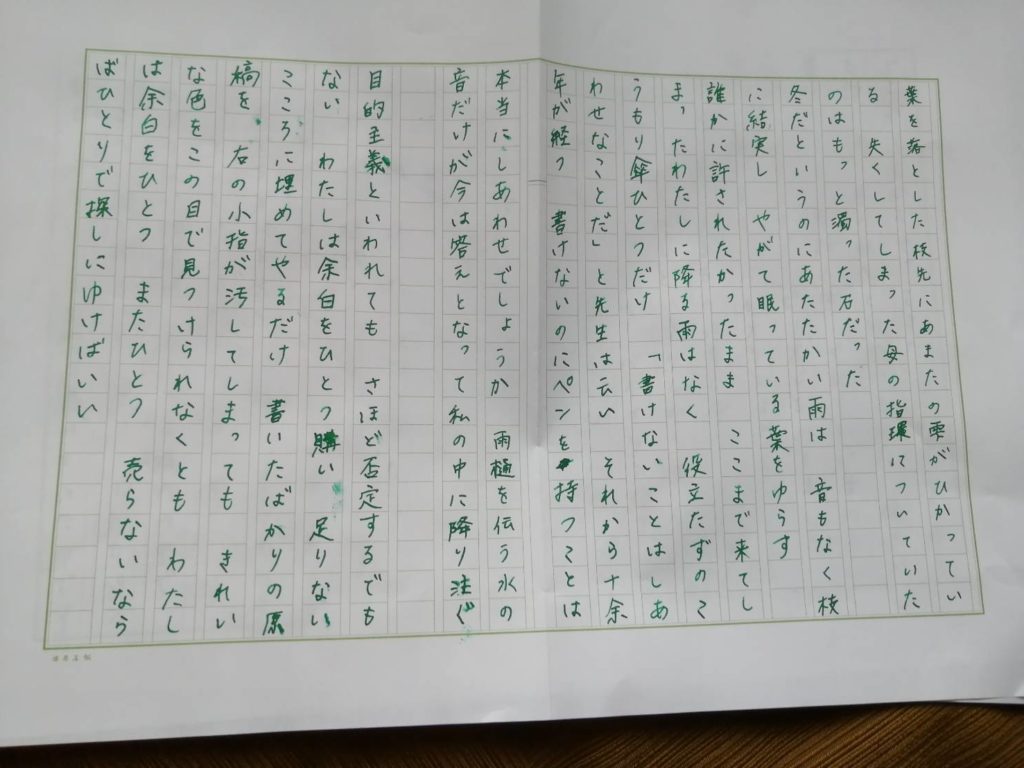 葉を落とした枝先にあまたの雫がひかってい
る　失くしてしまった母の指環についていた
のはもっと濁った石だった
冬だというのにあたたかい雨は　音もなく枝
に結実し　やがて眠っている葉をゆらす
誰かに許されたかったまま　ここまで来てし
まったわたしに降る雨はなく　役立たずのこ
うもり傘ひとつだけ　「書けないことはしあ
わせなことだ」と先生は云い　それから十余
年が経つ　書けないのにペンを持つことは
本当にしあわせでしょうか　雨樋を伝う水の
音だけが今は答えとなって私の中に降り注ぐ
目的主義といわれても　さほど否定するでも
ない　わたしは余白をひとつ購い　足りない
こころに埋めてやるだけ　書いたばかりの原
稿を　右の小指が汚してしまっても　きれい
な色をこの目で見つけられなくとも　わたし
は余白をひとつ　またひとつ　売らないなら
ばひとりで探しにゆけばいい